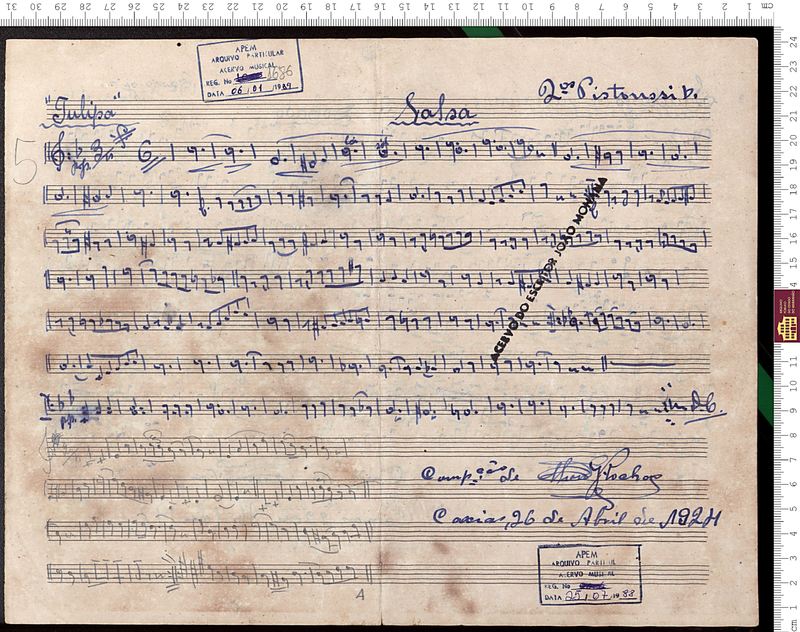 APEM
ARQUIVO PARTICULAR
ACERVO MUSICAL
REG. No 1686
DATA 06 / 01 / 1989
"Tulipa"
Valsa
2os Pistons si b.
5
6
D.C.
ACERVO DO ESCRITOR JOÃO MOHANA
Comp.ção de
Caxias, 26 de Abril de 1924
APEM
ARQUIVO PARTICULAR
ACERVO MUSICAL
REG. No
DATA 25 / 07 / 19 88
A